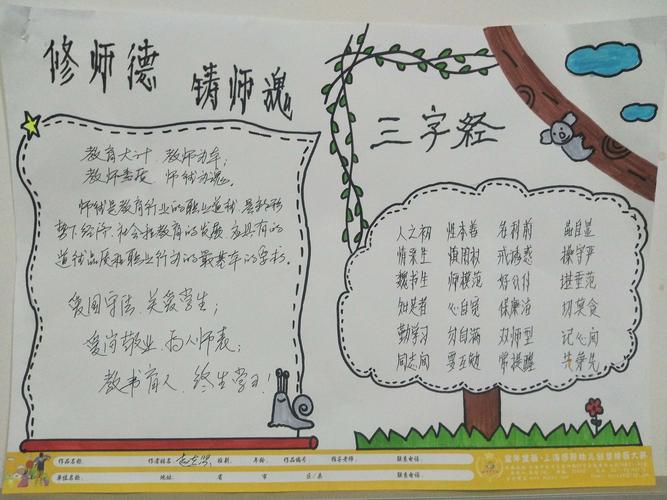 修师德 铸师魂
教育大计，教师为本；
教师素质，师德为魂。
师德是教育行业的职业道德，是新形
势下经济、社会和教育的发展，应具有的
道德品质和职业行为的最基本的要求。
爱国守法，关爱学生；
爱岗敬业，为人师表；
教书育人，终生学习！
三字经
人之初 性本善 名利前 品自显
情来生 慎用权 戒诱惑 操守严
魏书生 师模范 好公仆 进垂范
知足者 心自宽 保廉洁 切莫贪
勤学习 勿自满 双师型 记心间
同志间 要互勉 常提醒
作品名称： 作者姓名： 班别： 年龄： 作品编号： 指导老师： 联系电话：
单位名称： 地址： 省 市 区/县 联系电话：